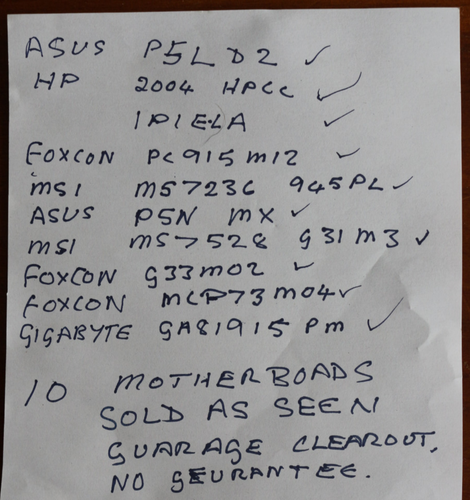 ASUS P5LD2 ✓
HP 2004 HPCC ✓
IPIELA ✓
FOXCON PC915M12 ✓
MSI MS7236 945PL ✓
ASUS P5N MX ✓
MSI MS7528 G31M3 ✓
FOXCON G33M02 ✓
FOXCON MCP73M04 ✓
GIGABYTE GA81915 PM ✓
10 MOTHERBOADS
SOLD AS SEEN
GUARAGE CLEAROUT.
NO GEURANTEE.